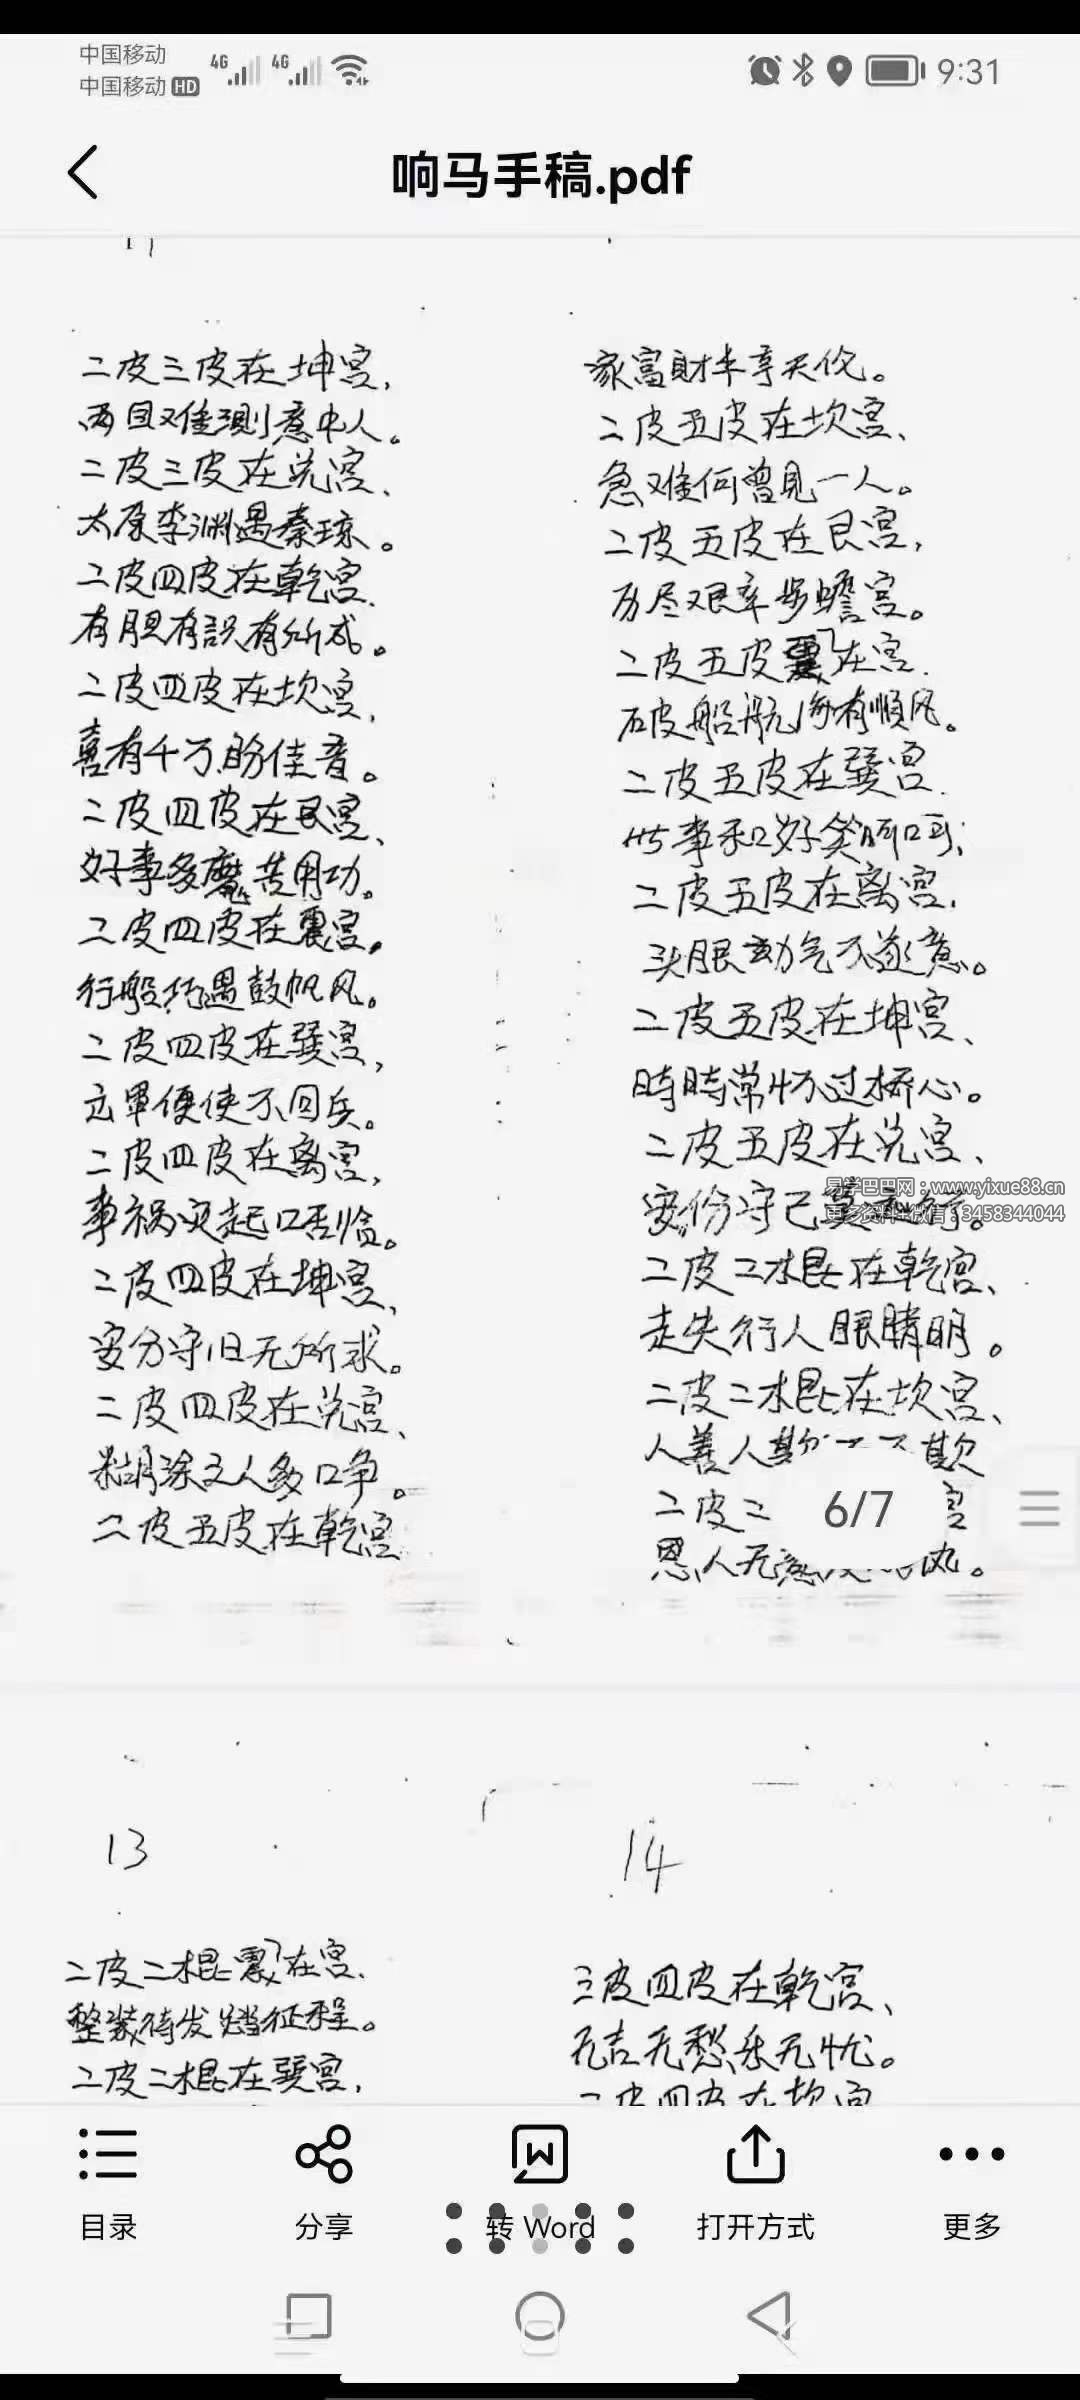 中国移动
中国移动 HD
4G 4G
9:31
响马手稿.pdf
二皮三皮在坤宫,
两目难测意中人。
二皮三皮在兑宫、
太原李渊遇秦琼。
二皮四皮在乾宫.
有胆有識有所成。
二皮四皮在坎宫,
喜有千万盼佳音。
二皮四皮在艮宫、
好事多魔苦用功。
二皮四皮在震宫,
行船巧遇鼓帆风。
二皮四皮在巽宫,
立軍便使不回兵。
二皮四皮在离宫,
事祸灾起口舌临。
二皮四皮在坤宫,
安分守旧无所求。
二皮四皮在兑宫、
糊涂文人多口争。
二皮五皮在乾宫
家富財丰享天伦。
二皮五皮在坎宫、
急难何曾見一人。
二皮五皮在艮宫,
历尽艰辛步蟾宫。
二皮五皮震在宫.
破船航海有順风。
二皮五皮在巽宫.
世事和好笑呵呵;
二皮五皮在离宫.
头眼动气不遂意。
二皮五皮在坤宫、
時時常怀过桥心。
二皮五皮在兑宫、
安份守己莫行。
易学巴巴网:www.yixue88.cn
更多资料+微信:3458344044
二皮二木棍在乾宫、
走失行人眼睛明。
二皮二木棍在坎宫、
人善人欺 欺
二皮二 宫
恩人无意 。
6/7
13
二皮二木棍震在宫.
整装待发踏征程。
二皮二木棍在巽宫,
14
三皮四皮在乾宫、
无吉无愁乐无忧。
皮四皮在坎宫
目录
分享
转 Word
打开方式
更多